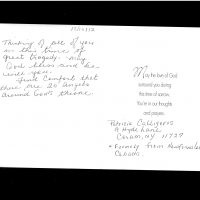 12/21/12
Thinking of all of you
in this time of
great tragedy. May
God bless and be
with you.
Find comfort that
there are 20 angels
around God's throne.
May the love of God
surround you during
this time of sorrow.
You're in our thoughts
and prayers.
Patricia
9 Hyde Lane
Coram, NY 11727
Formerly from